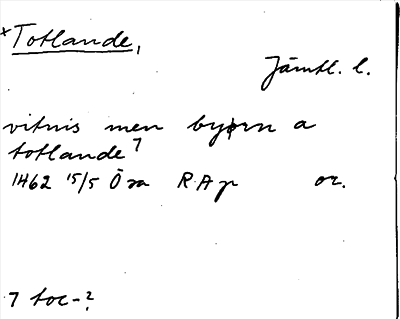 ×Totlande,
Jämtl. l.
vitnis men byørn a
totlande⁷
1462 15/5 Öra RAp or.
7 toc-?